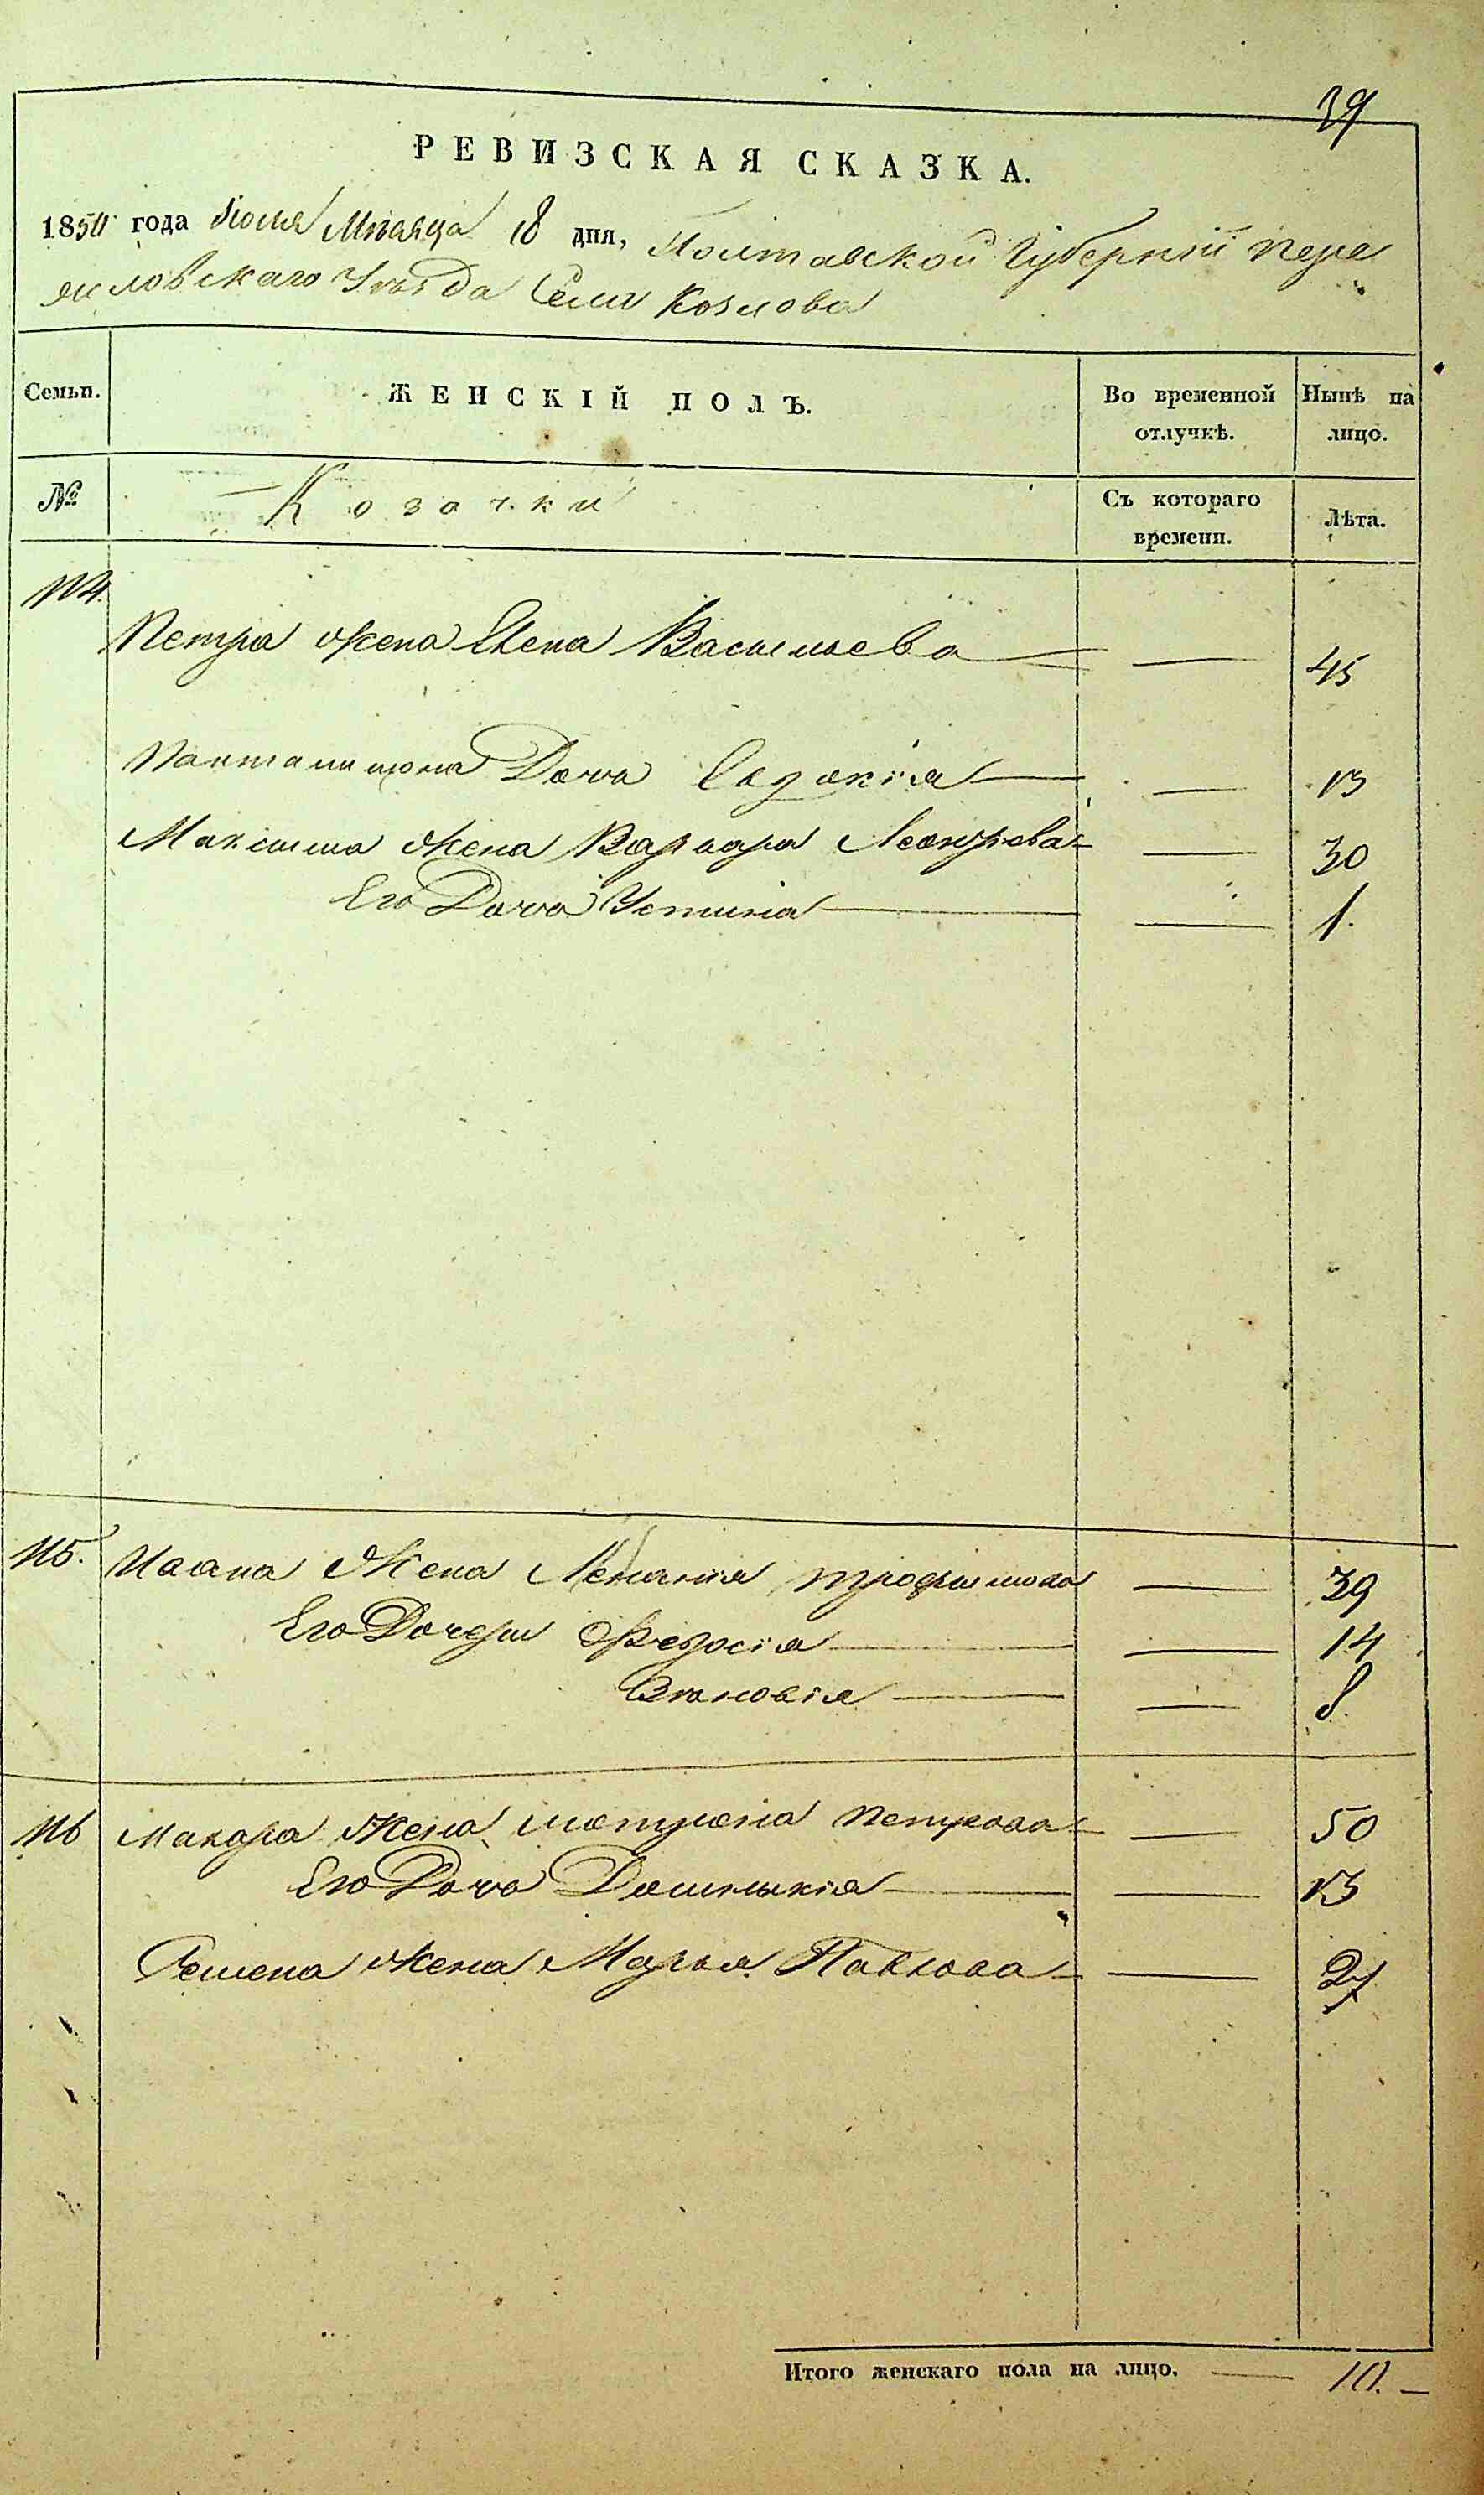 39
РЕВИЗСКАЯ СКАЗКА.
1850 года Июля Мѣсяца 18 дня, Полтавской Губерніи Пере
ясловскаго Уѣзда Села Козлова
Семьи. ЖЕНСКІЙ ПОЛЪ. Во временной отлучкѣ. Нынѣ на лицо.
№ Козачки Съ котораго времени. Лѣта.
114.
Петра жена Елена Васильева — — 45
Панталимона Дочь Евдокія — — 13
Максима жена Варвара — 30
Его Дочь Устинія — — 1.
115. Ивана Жена Меланія Трофимова — 39
Его Дочери Федосія — — 14
Зиновія — — 8.
116 Макара Жена Матрона Петрова — — 50
Его Дочь Домникія — — 13
Семена жена Марья Павлова — — 27
Итого женскаго пола на лицо. — 10. —